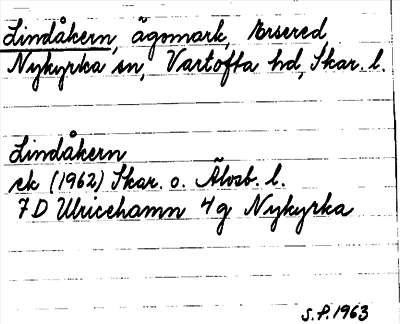 Lindåkern, ägomark, Ersered
Nykyrka sn, Vartofta hd, Skar. l.
Lindåkern
ek (1962) Skar. o. Älvsb. l.
7 D Ulricehamn 4g Nykyrka
S.P. 1963